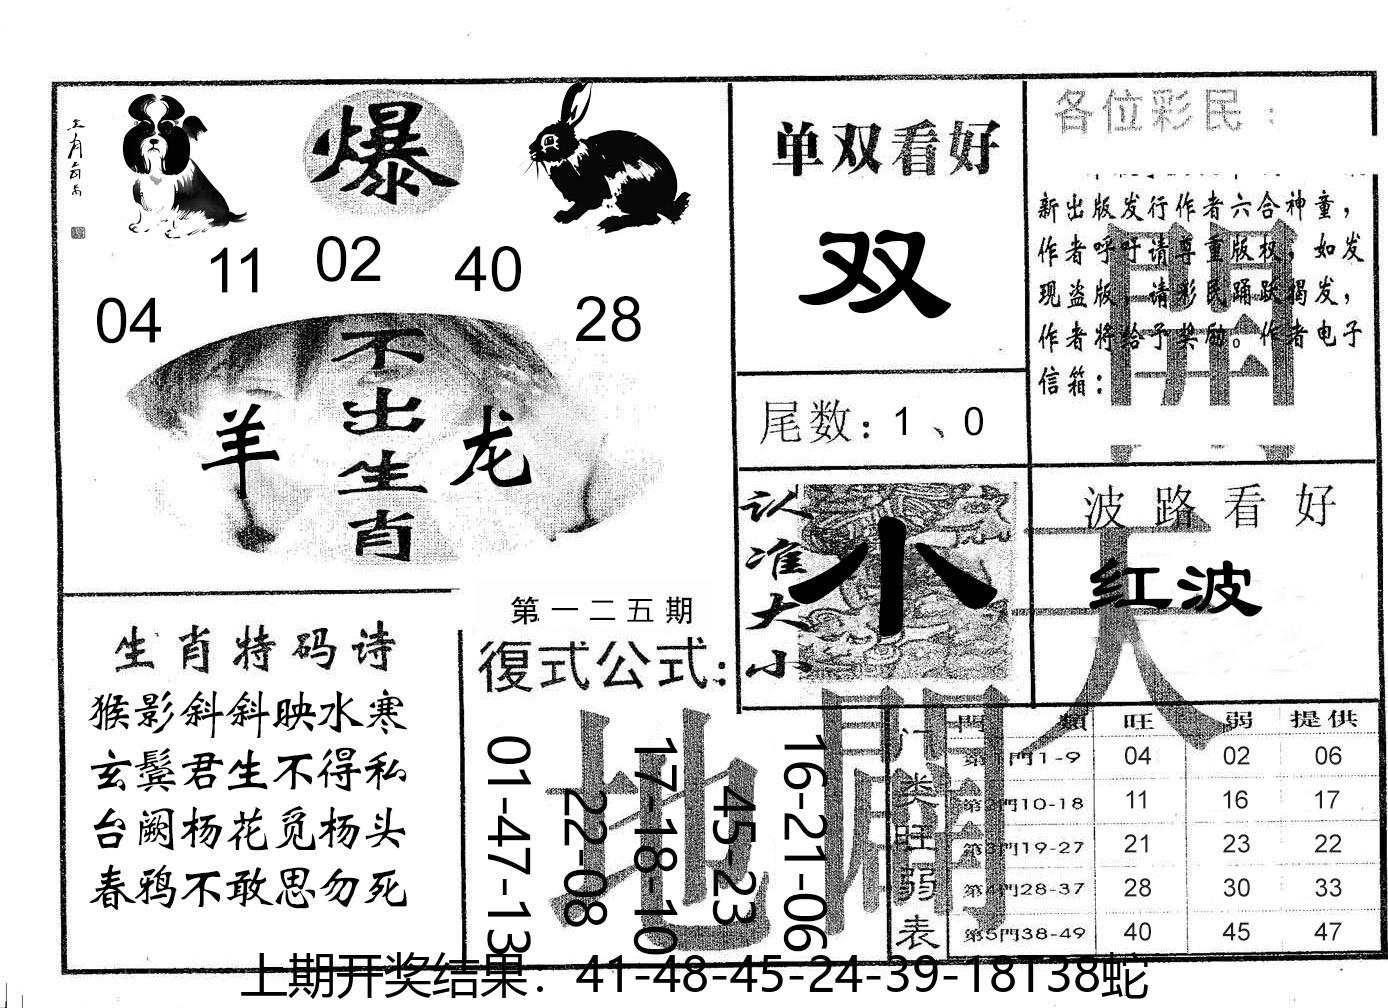 爆
11
02
40
04
28
不出生肖
羊
龙
单双看好
双
尾数：1、0
各位彩民：
新出版发行作者六合神童，
作者呼吁请尊重版权，如发
现盗版，请彩民踊跃揭发，
作者将给予奖励。作者电子
信箱：
认准大小
小
波路看好
红波
天
開
地
開
生肖特码诗
猴影斜斜映水寒
玄鬓君生不得私
台阙杨花觅杨头
春鸦不敢思勿死
第一二五期
復式公式：
01-47-13
22-08
17-18-10
45-23
16-21-06
门类旺弱表
門類 旺 弱 提供
第1門1-9 04 02 06
第2門10-18 11 16 17
第3門19-27 21 23 22
第4門28-37 28 30 33
第5門38-49 40 45 47
上期开奖结果：41-48-45-24-39-18T38蛇